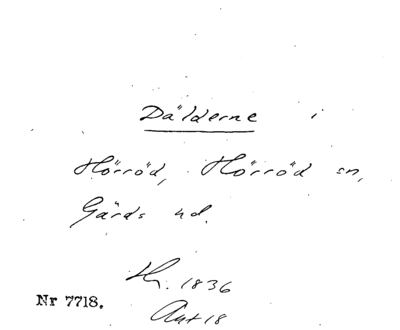 Dälderne i
Hörröd, Hörröd sn,
Gärds hd.
Hy. 1836
Nr 7718.
Akt 18